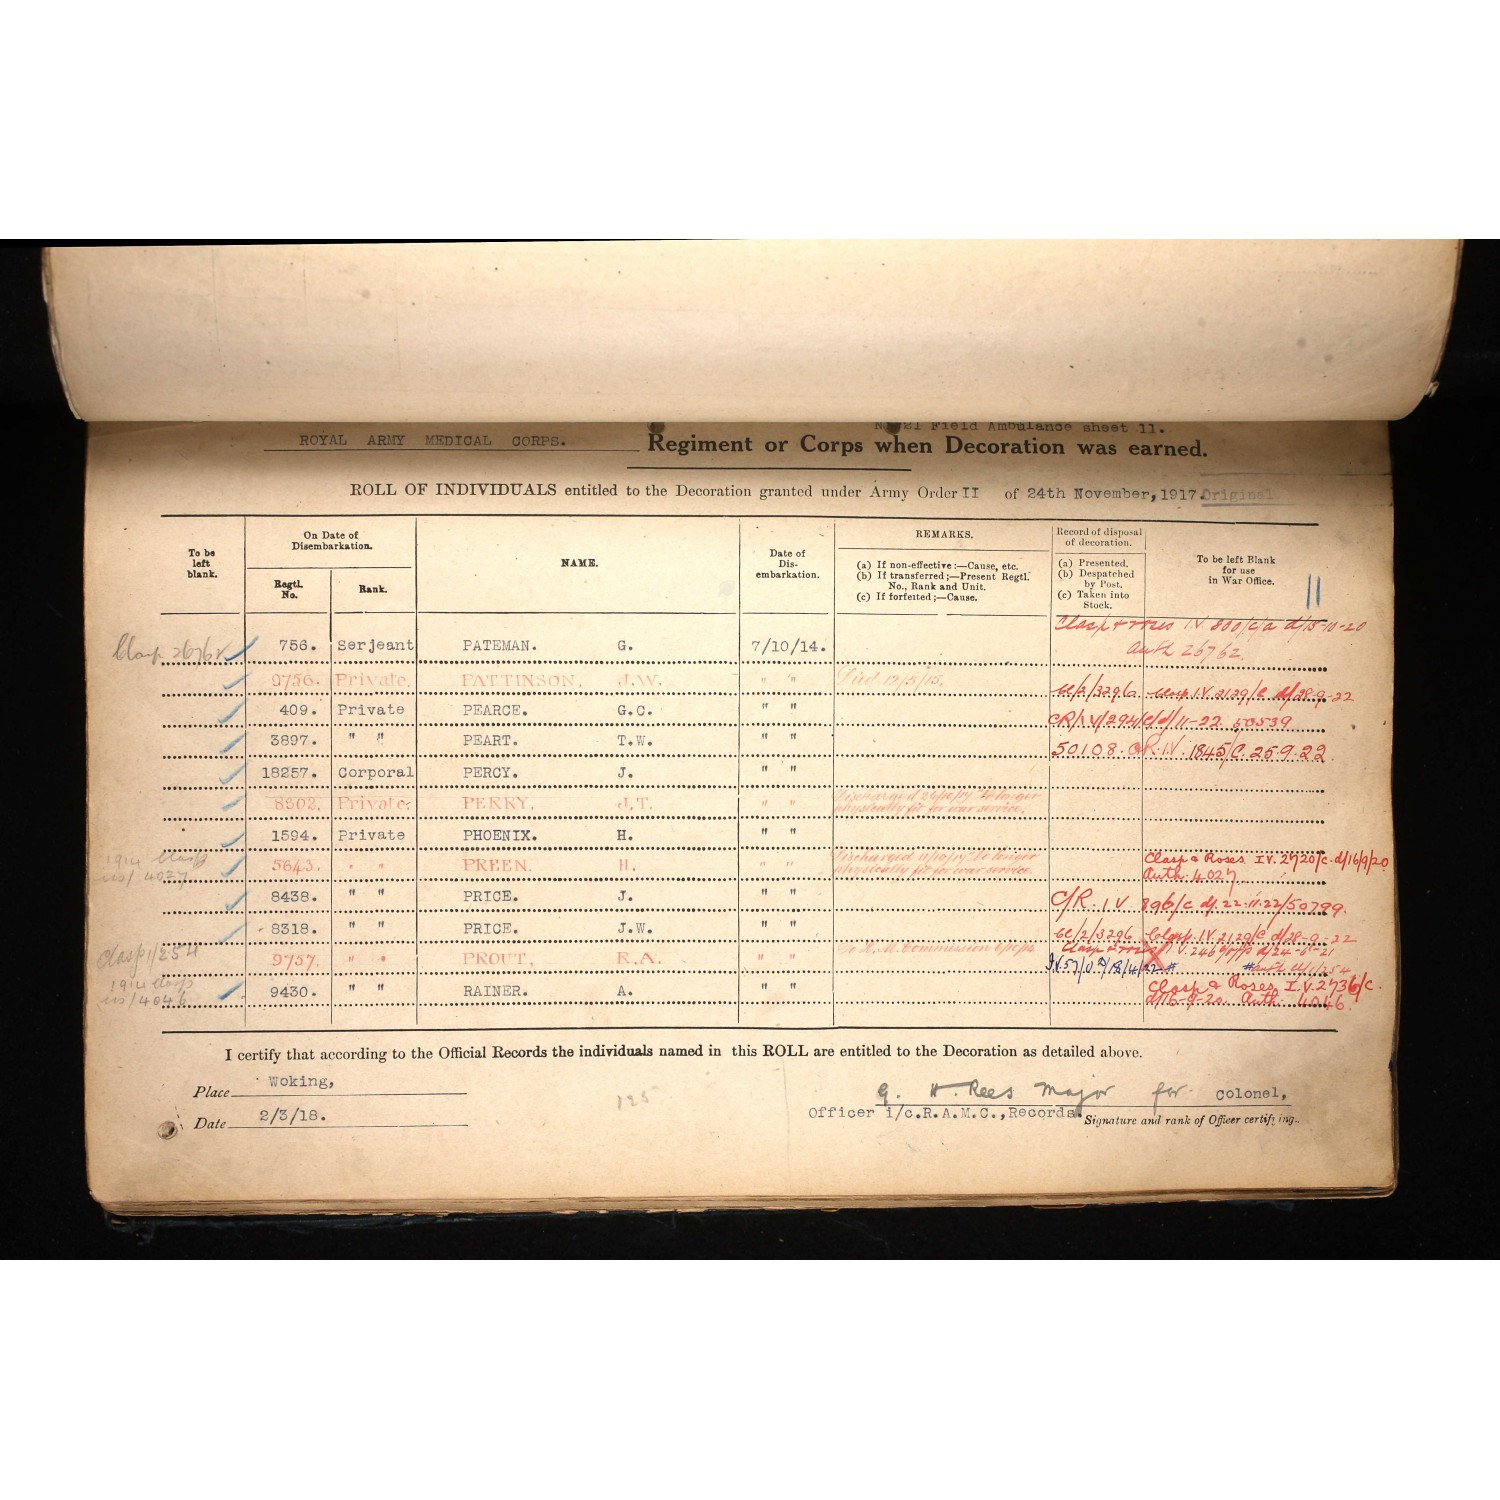 No. 21 Field Ambulance sheet 11.
ROYAL ARMY MEDICAL CORPS. Regiment or Corps when Decoration was earned.
ROLL OF INDIVIDUALS entitled to the Decoration granted under Army Order II of 24th November, 1917. Original
To be left blank.
On Date of Disembarkation.
Regtl. No.
Rank.
NAME.
Date of Disembarkation.
REMARKS.
(a) If non-effective:—Cause, etc.
(b) If transferred;—Present Regtl. No., Rank and Unit.
(c) If forfeited;—Cause.
Record of disposal of decoration.
(a) Presented.
(b) Despatched by Post.
(c) Taken into Stock.
To be left Blank for use in War Office.
11
Clasp 26762 756. Serjeant PATEMAN. G. 7/10/14. Clasp & roses I.V. 800/c/a d/15-10-20
Auth 26762.
9756. Private. PATTINSON. J.W. " " Died 12/5/15. 6E/2/3296 Clasp. I.V. 2129/C d/28-9-22
409. Private PEARCE. G.C. " " CR/I.V/294/C/d/11-22 50539
3897. " " PEART. T.W. " " 50108. CR. I.V. 1845/C. 25.9.22
18257. Corporal PERCY. J. " "
8502. Private. PERRY. J.T. " " Discharged 26/10/17 No longer
physically fit for war service.
1594. Private PHOENIX. H. " "
1914 Clasp
iss/4027 5643. " " PREEN. H. " " Discharged 11/10/17 No longer
physically fit for war service. Clasp & Roses I.V. 2720/C. d/16/9/20
Auth 4027
8438. " " PRICE. J. " " C/R. I.V 896/C d/. 22.11.22/50799.
8318. " " PRICE. J.W. " " 6E/2/3296 Clasp. I.V. 2129/C d/28-9-22
Clasp 1/254 9757. " " PROUT. R.A. " " To R.M. Commission Clasp & roses
I.V. 57/
1914 Clasp
iss/4046 9430. " " RAINER. A. " " Clasp & Roses I.V. 2736/C.
d/16-9-20 Auth 4046.
I certify that according to the Official Records the individuals named in this ROLL are entitled to the Decoration as detailed above.
Place Woking,
Date 2/3/18.
125
G. H. Rees Major for Colonel,
Officer i/c.R.A.M.C., Records.
Signature and rank of Officer certifying.